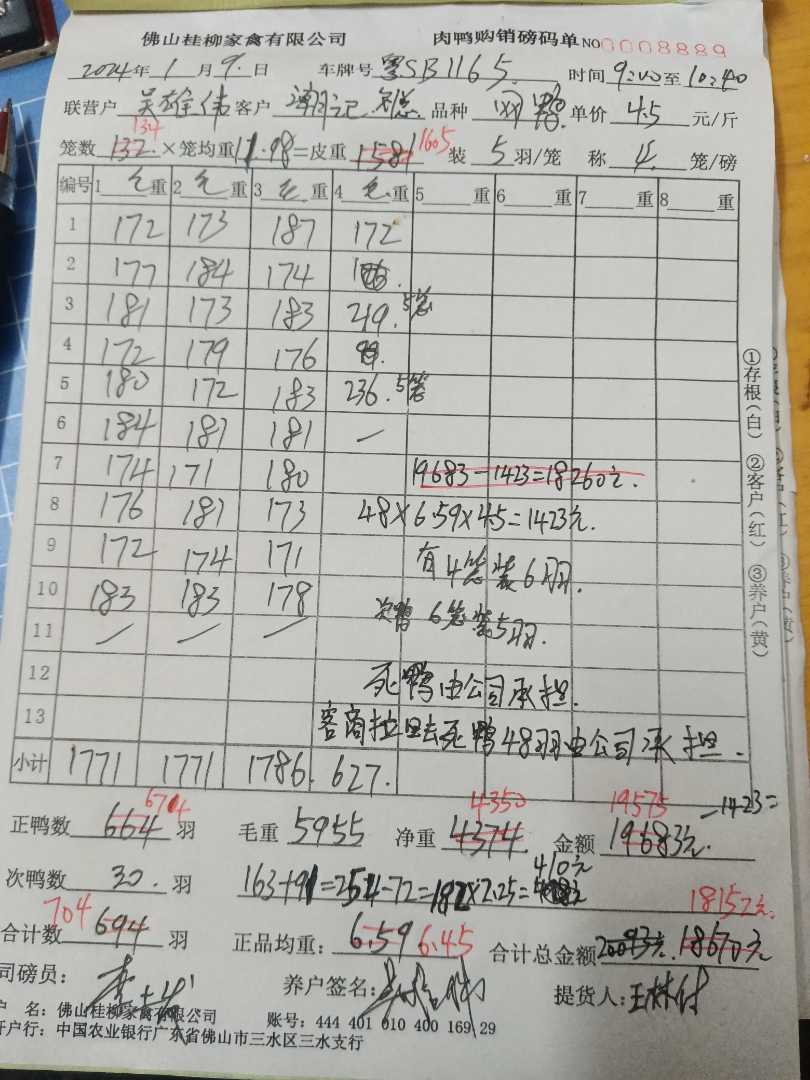 佛山桂柳家禽有限公司 肉鸭购销磅码单 NO 0008889
2024年 1月 9.日 车牌号 粤SB1165. 时间 9:00至10:40
联营户 吴雄伟 客户 品种 单价 4.5 元/斤
134 1605
笼数 132. ×笼均重 11.98 =皮重 1581 装 5 羽/笼 称 4. 笼/磅
编号 1 毛 重 2 毛 重 3 毛 重 4 毛 重 5 重 6 重 7 重 8 重
1 172 173 187 172
2 177 184 174
3 181 173 183 219. 5笼
4 172 179 176
5 180 172 183 236. 5笼
6 184 181 181 —
7 174 171 180 19683-1423=18260元.
8 176 181 173 48×6.59×4.5=1423元.
9 172 174 171 有4笼装6羽.
10 183 183 178 次鸭 6笼装5羽.
11 — — —
12 死鸭由公司承担.
13 客商拉回去死鸭48羽由公司承担.
小计 1771 1771 1786. 627.
674 4350 19575 -1423=
正鸭数 664 羽 毛重 5955 净重 4374 金额 19683元.
410元
次鸭数 30. 羽 163+91=254-72=182×2.25=
18152元.
704
合计数 694 羽 正品均重: 6.59 6.45 合计总金额 20093元. 18670元
司磅员: 养户签名: 提货人: 王林付
户 名: 佛山桂柳家禽有限公司 账号: 444 401 010 400 169 29
开户行: 中国农业银行广东省佛山市三水区三水支行
①存根(白) ②客户(红) ③养户(黄)